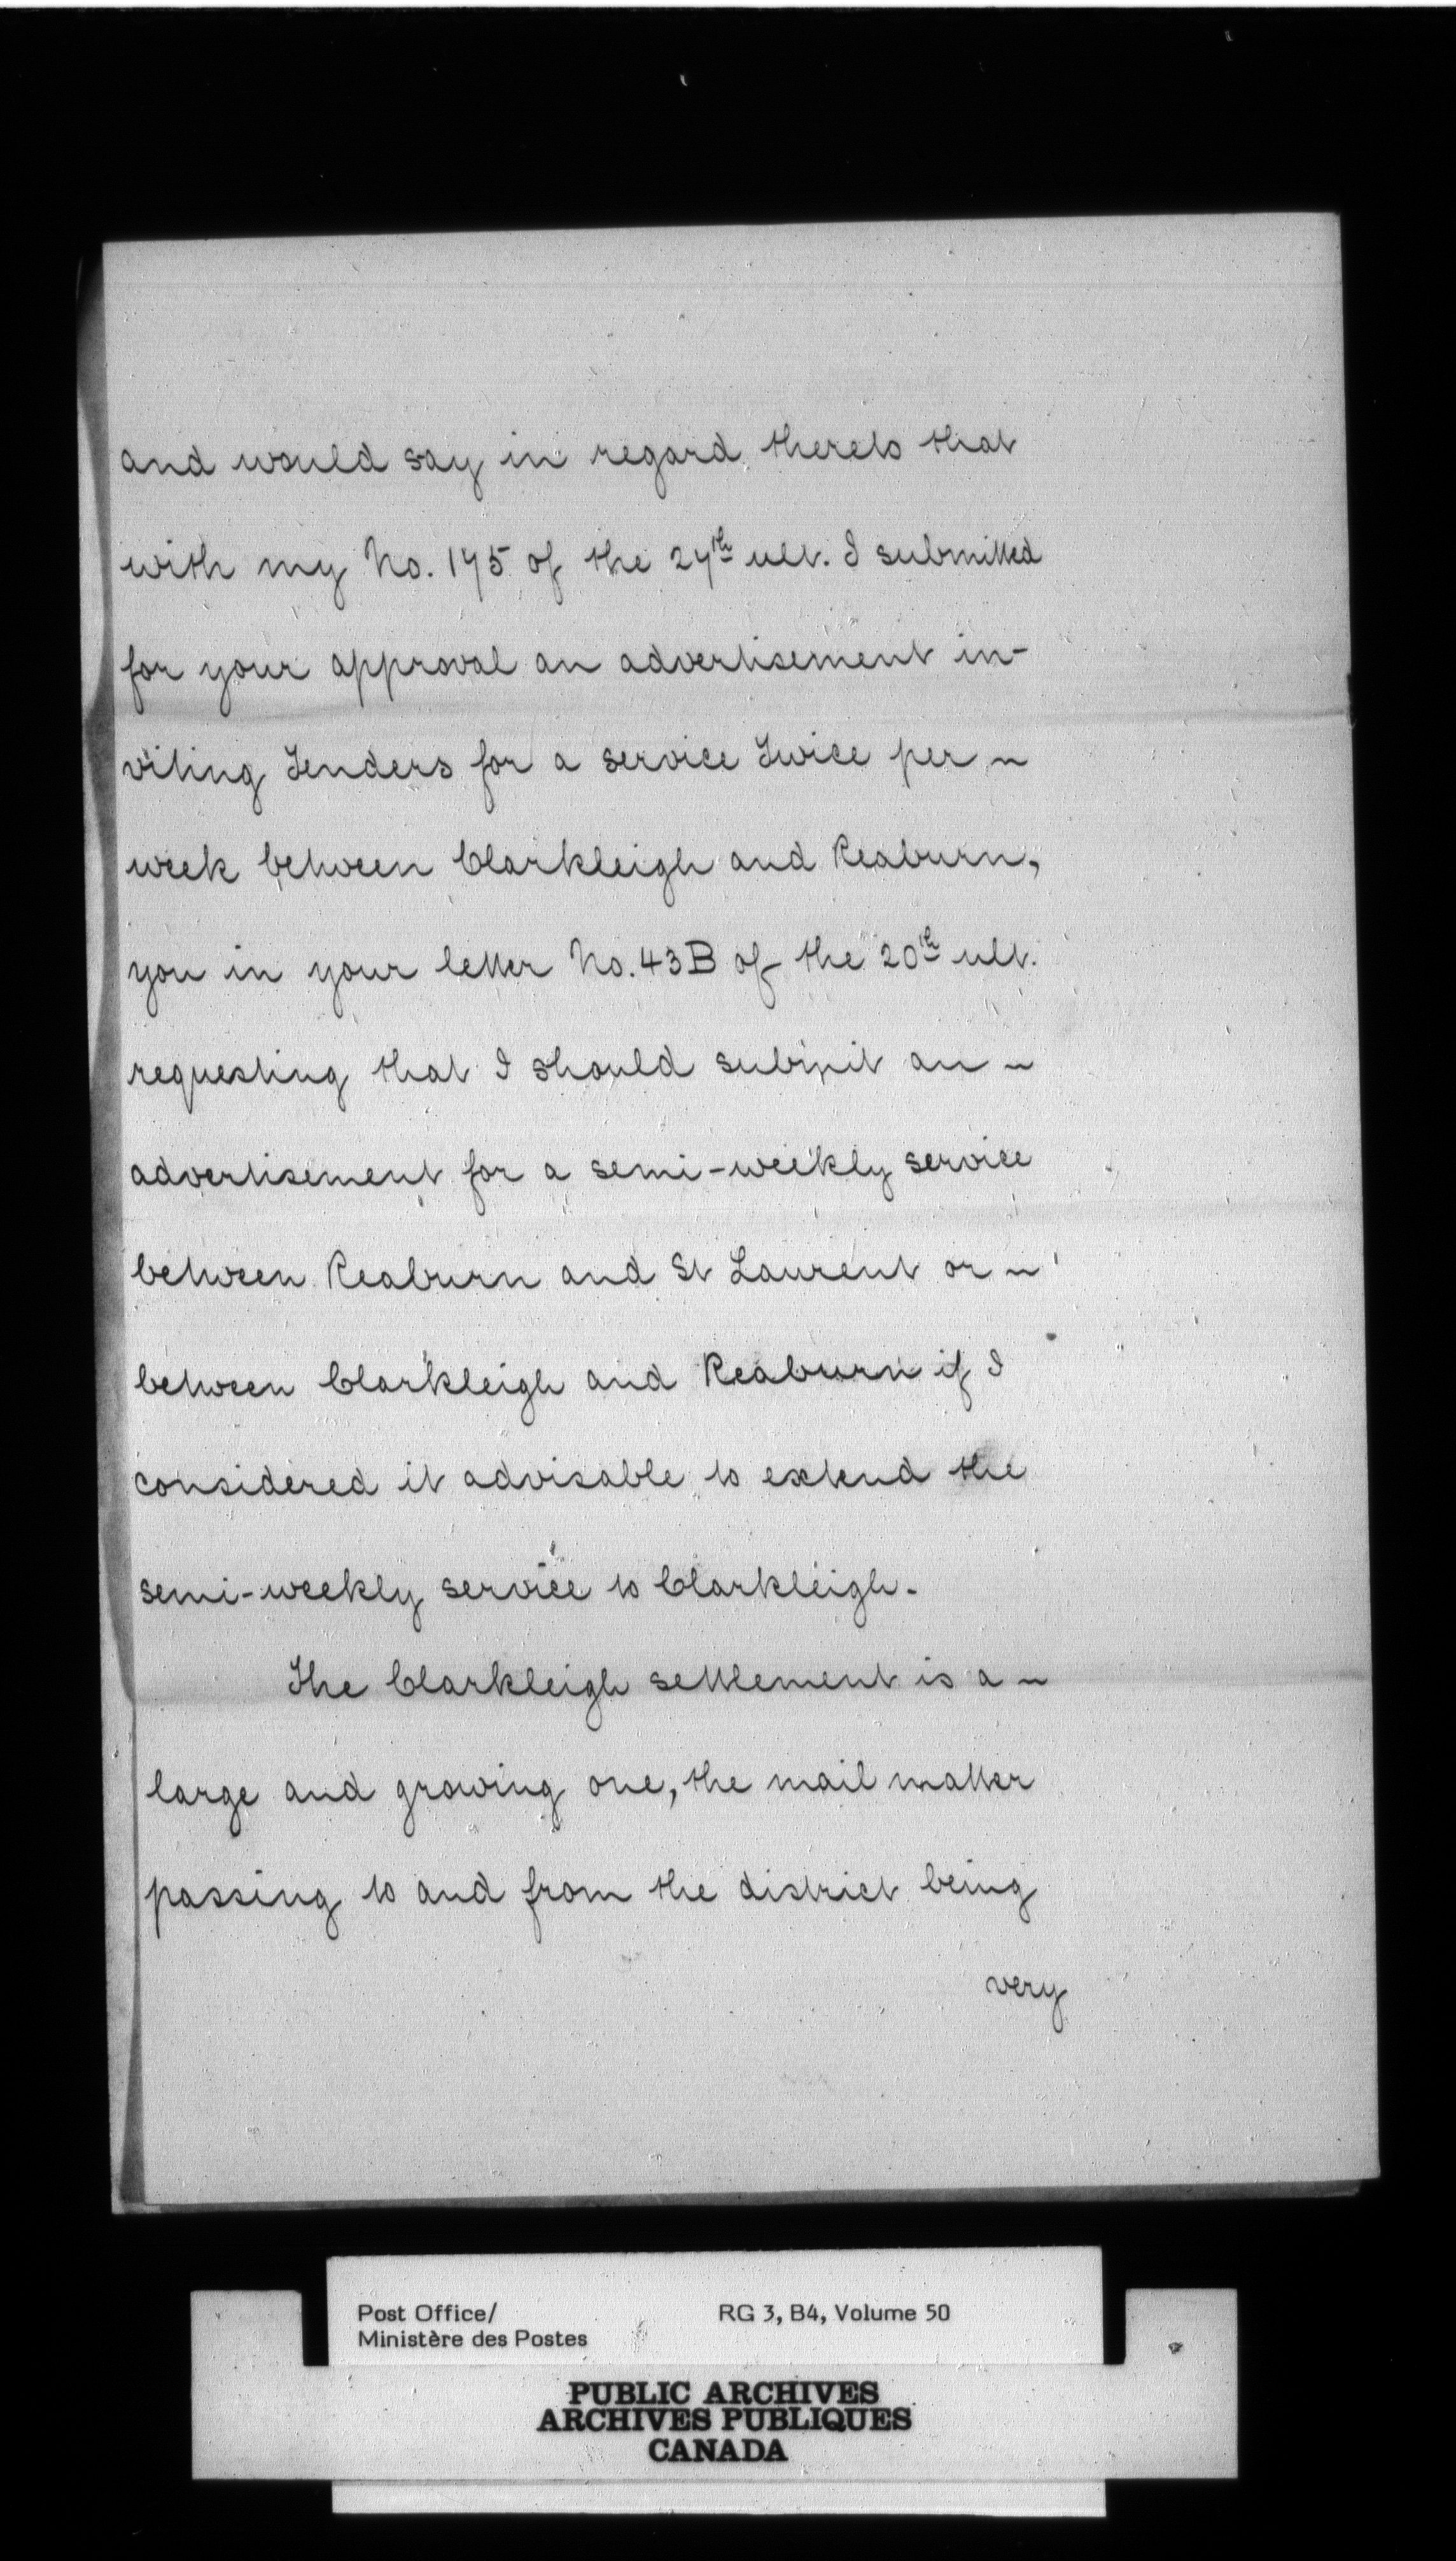 and would say in regard thereto that
with my No. 175 of the 27th ult. I submitted
for your approval an advertisement in-
viting Tenders for a service Twice per ~
week between Clarkleigh and Reaburn,
you in your letter No. 43B of the 20th ult.
requesting that I should submit an ~
advertisement for a semi-weekly service
between Reaburn and St Laurent or ~
between Clarkleigh and Reaburn if I
considered it advisable to extend the
semi-weekly service to Clarkleigh.
The Clarkleigh settlement is a ~
large and growing one, the mail matter
passing to and from the district being
very
Post Office/
Ministère des Postes
RG 3, B4, Volume 50
PUBLIC ARCHIVES
ARCHIVES PUBLIQUES
CANADA